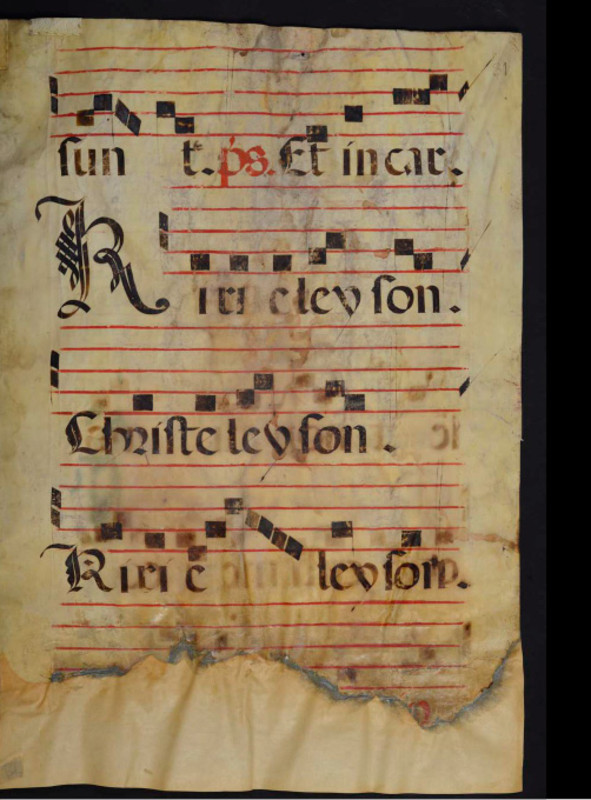 sun t. ps. Et in car.
Kiri eleyson.
Christeleyson.
Kirie leyson.